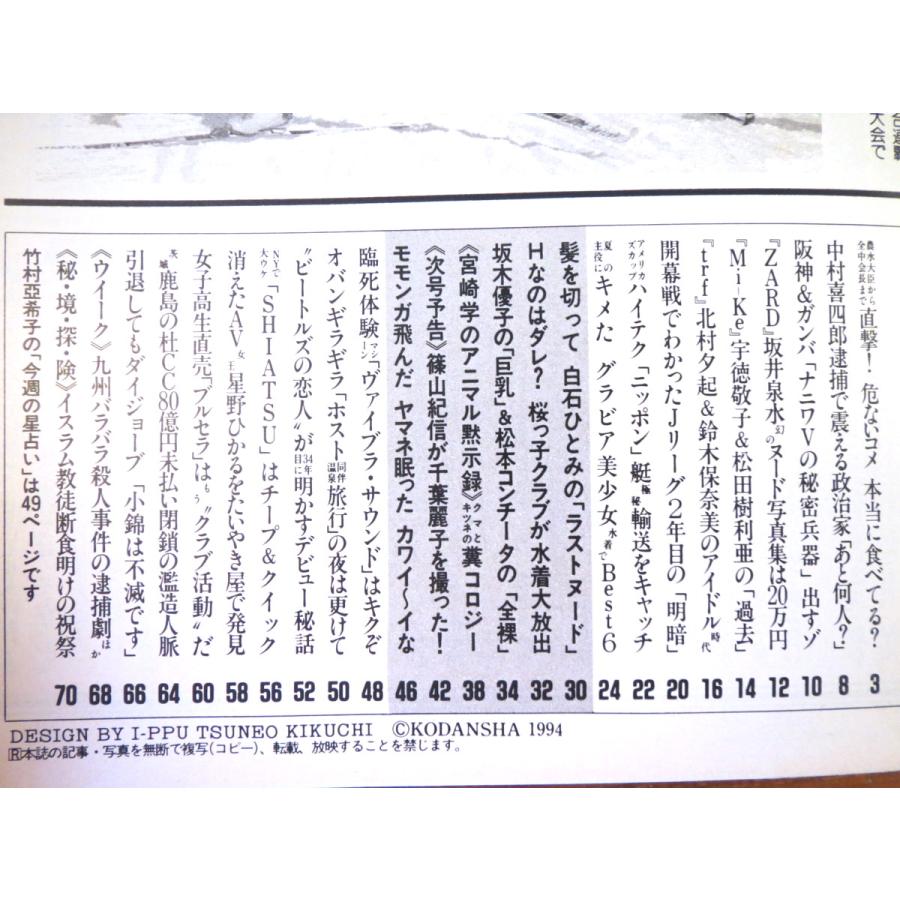 大会で
農水大臣から全中会長まで直撃！ 危ないコメ 本当に食べてる？ 3
中村喜四郎逮捕で震える政治家「あと何人？」 8
阪神＆ガンバ「ナニワVの秘密兵器」出すゾ 10
『ZARD』坂井泉水幻のヌード写真集は20万円 12
『Mi-Ke』宇徳敬子＆松田樹利亜の「過去」 14
『trf』北村夕起＆鈴木保奈美のアイドル時代 16
開幕戦でわかったJリーグ2年目の「明暗」 20
アメリカズカップハイテク「ニッポン」艇極秘輸送をキャッチ 22
夏の主役にキメた グラビア美少女水着でBest6 24
髪を切って 白石ひとみの「ラストヌード」 30
Hなのはダレ？ 桜っ子クラブが水着大放出 32
坂木優子の「巨乳」＆松本コンチータの「全裸」 34
《宮崎学のアニマル黙示録》クマとキツネの糞コロジー 38
《次号予告》篠山紀信が千葉麗子を撮った！ 42
モモンガ飛んだ ヤマネ眠った カワイ〜イな 46
臨死体験マシーン「ヴァイブラ・サウンド」はキクぞ 48
オバンギラギラ「ホスト同伴温泉旅行」の夜は更けて 50
“ビートルズの恋人”が34年目に明かすデビュー秘話 52
NYで大ウケ「SHIATSU」はチープ＆クイック 56
消えたAV女王星野ひかるをたいやき屋で発見 58
女子高生直売「ブルセラ」はもう“クラブ活動”だ 60
茨城鹿島の杜CC80億円未払い閉鎖の濫造人脈 64
引退してもダイジョーブ「小錦は不滅です」 66
《ウイーク》九州バラバラ殺人事件の逮捕劇ほか 68
《秘・境・探・険》イスラム教徒断食明けの祝祭 70
竹村亞希子の「今週の星占い」は49ページです
DESIGN BY I-PPU TSUNEO KIKUCHI ©KODANSHA 1994
Ⓡ本誌の記事・写真を無断で複写(コピー)、転載、放映することを禁じます。